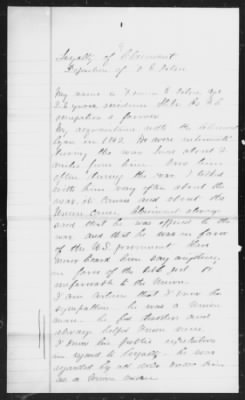 Loyalty of Claimant
Deposition of
My name is
years residence State
occupation a farmer
My acquaintance with the Claimant
began in 1862. We were intimate
during the war. lived about 2
miles from him. Saw him
often during the war. I talked
with him very often about the
war, its causes and about the
Union cause. Claimant always
said that he was opposed to the
war and that he was in favor
of the U.S. government. Have
never heard him say anything
in favor of the or
unfavorable to the Union.
I am certain that I knew his
sympathies. he was a Union
man. he fed and
always helped Union men.
I knew his public reputation
in regard to loyalty. he was
regarded by all who knew him
as a Union man.